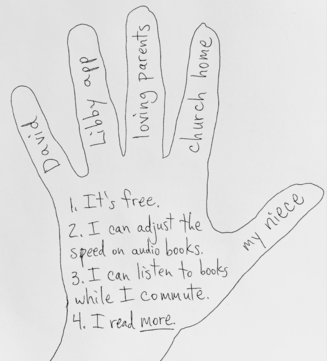 David
Libby app
loving parents
church home
my niece
1. It's free.
2. I can adjust the
speed on audio books.
3. I can listen to books
while I commute.
4. I read more.